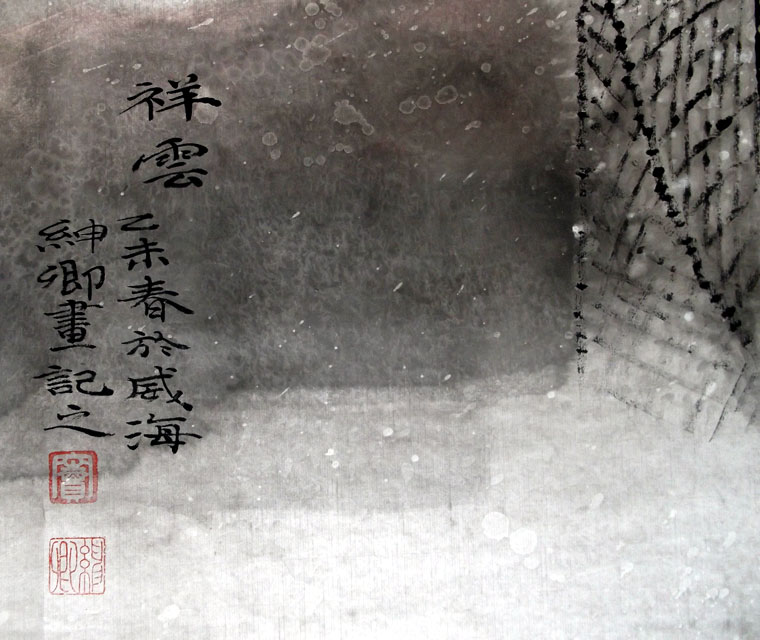 祥雲
乙未春於威海
紳卿畫記之